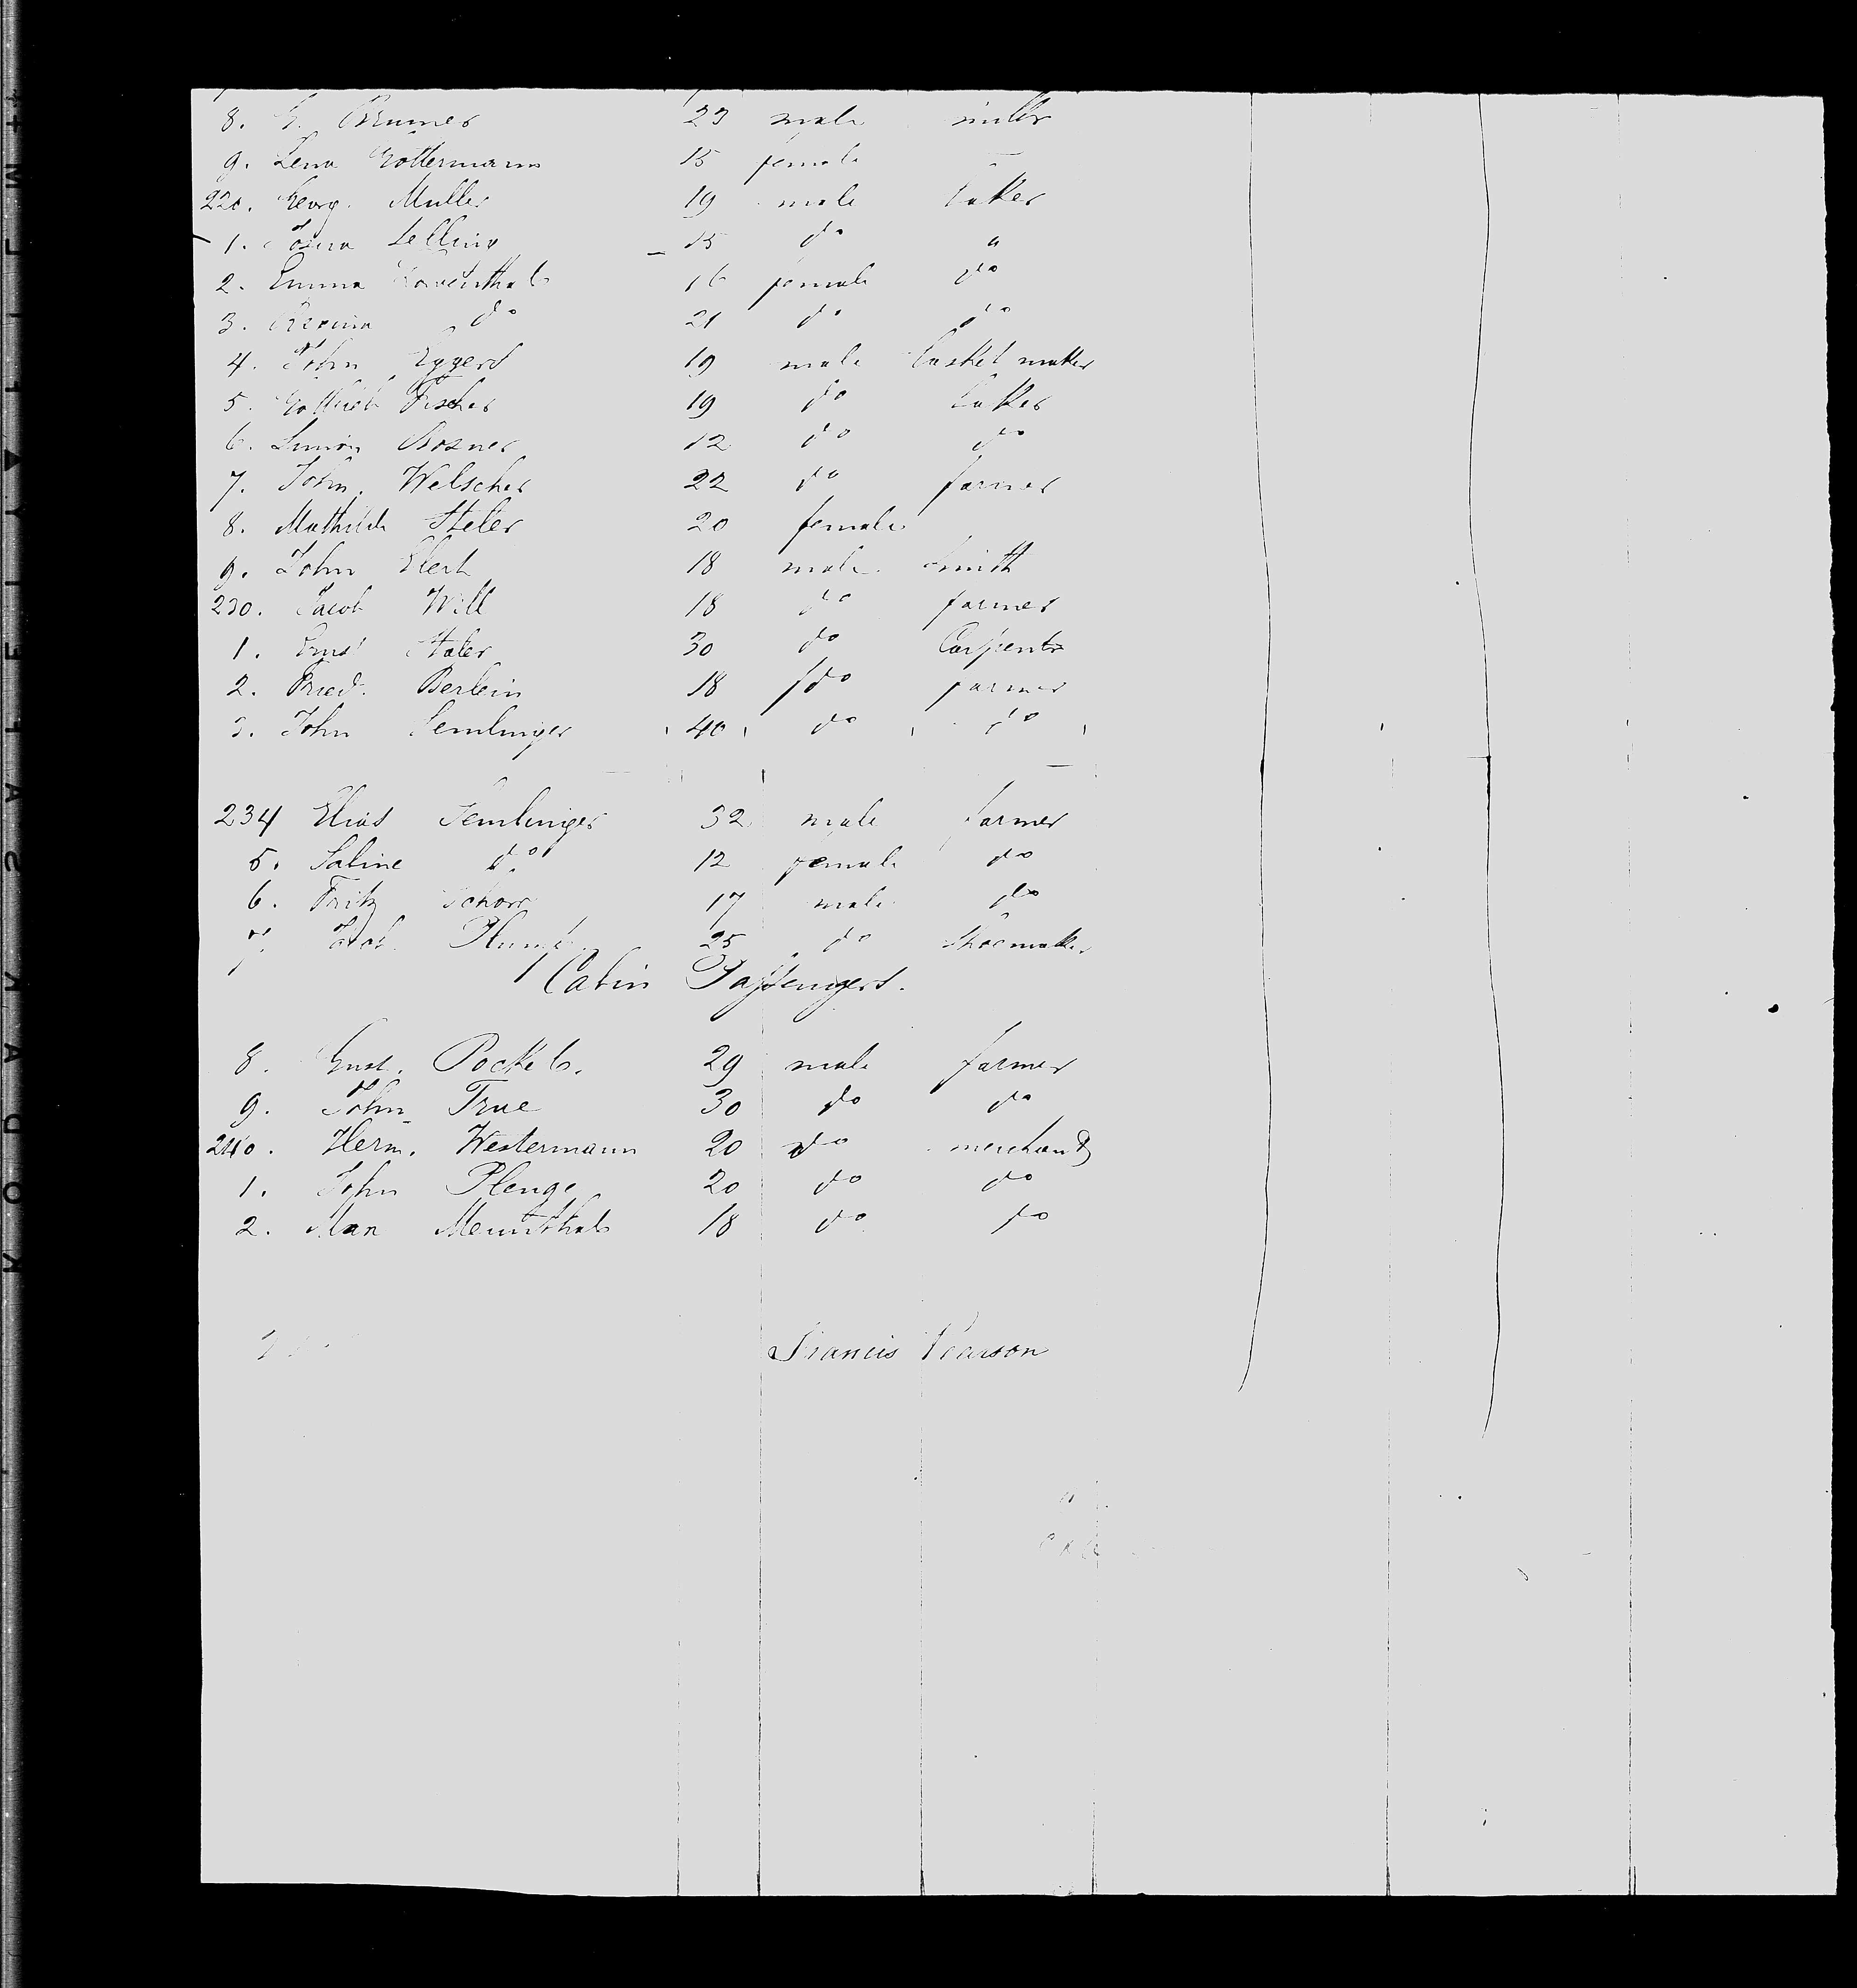 8. G. Brumer 23 male miller
9. Lena Gottermann 15 female
220. Georg. Muller 19 male baker
1. 15 do "
2. Emma 16 female do
3. do 21 do do
4. John Eggers 19 male basket maker
5. Gottlieb Fischer 19 do baker
6. Simon 12 do do
7. John. Welscher 22 do farmer
8. Mathilde Steler 20 female
9. John Ebert 18 male Smith
230. Jacob Will 18 do farmer
1. Ernst Stater 30 do Carpenter
2. Fried. Berlein 18 do farmer
3. John Semlinger 40 do do
234 Elias Semlinger 32 male farmer
5. Sabine do 12 female do
6. Fritz Schorr 17 male do
7. 25 do Shoemaker
Cabin Passengers.
8. Gust. Pockels. 29 male farmer
9. John True 30 do do
240. Herm. Westermann 20 do merchant
1. John Plenge 20 do do
2. Max 18 do do
Francis Pearson